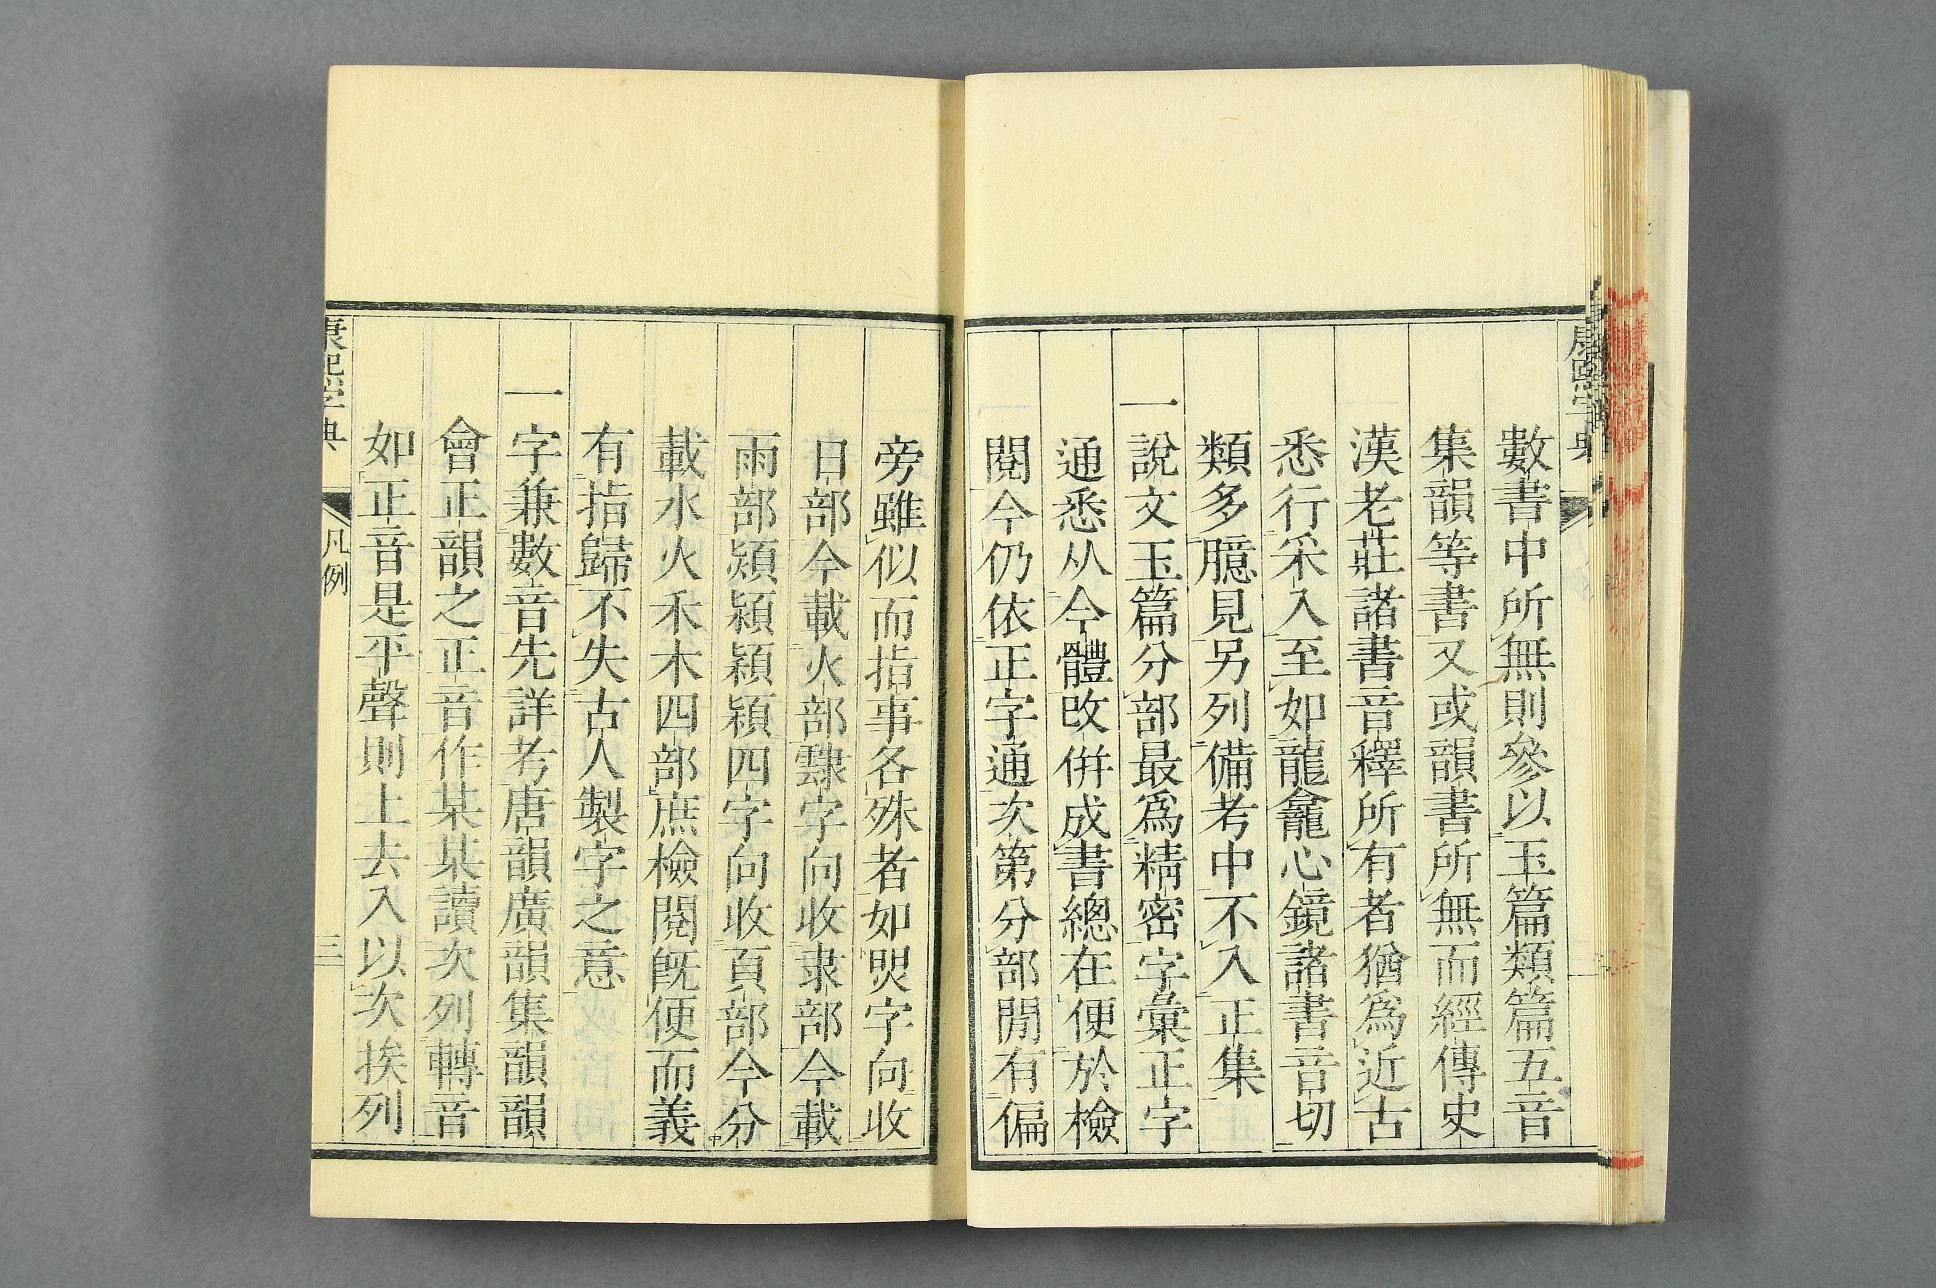 康熙字典
數書中所無則參以玉篇類篇五音
集韻等書又或韻書所無而經傳史
漢老莊諸書音釋所有者猶爲近古
悉行采入至如龍龕心鏡諸書音切
類多臆見另列備考中不入正集
一說文玉篇分部最爲精密字彙正字
通悉从今體改併成書總在便於檢
閱今仍依正字通次第分部閒有偏
旁雖似而指事各殊者如煛字向收
日部今載火部隸字向收隶部今載
雨部熲潁穎潁四字向收頁部今分
載水火禾木四部庶檢閱旣便而義
有指歸不失古人製字之意
一字兼數音先詳考唐韻廣韻集韻韻
會正韻之正音作某某讀次列轉音
如正音是平聲則上去入以次挨列
康熙字典 凡例 三